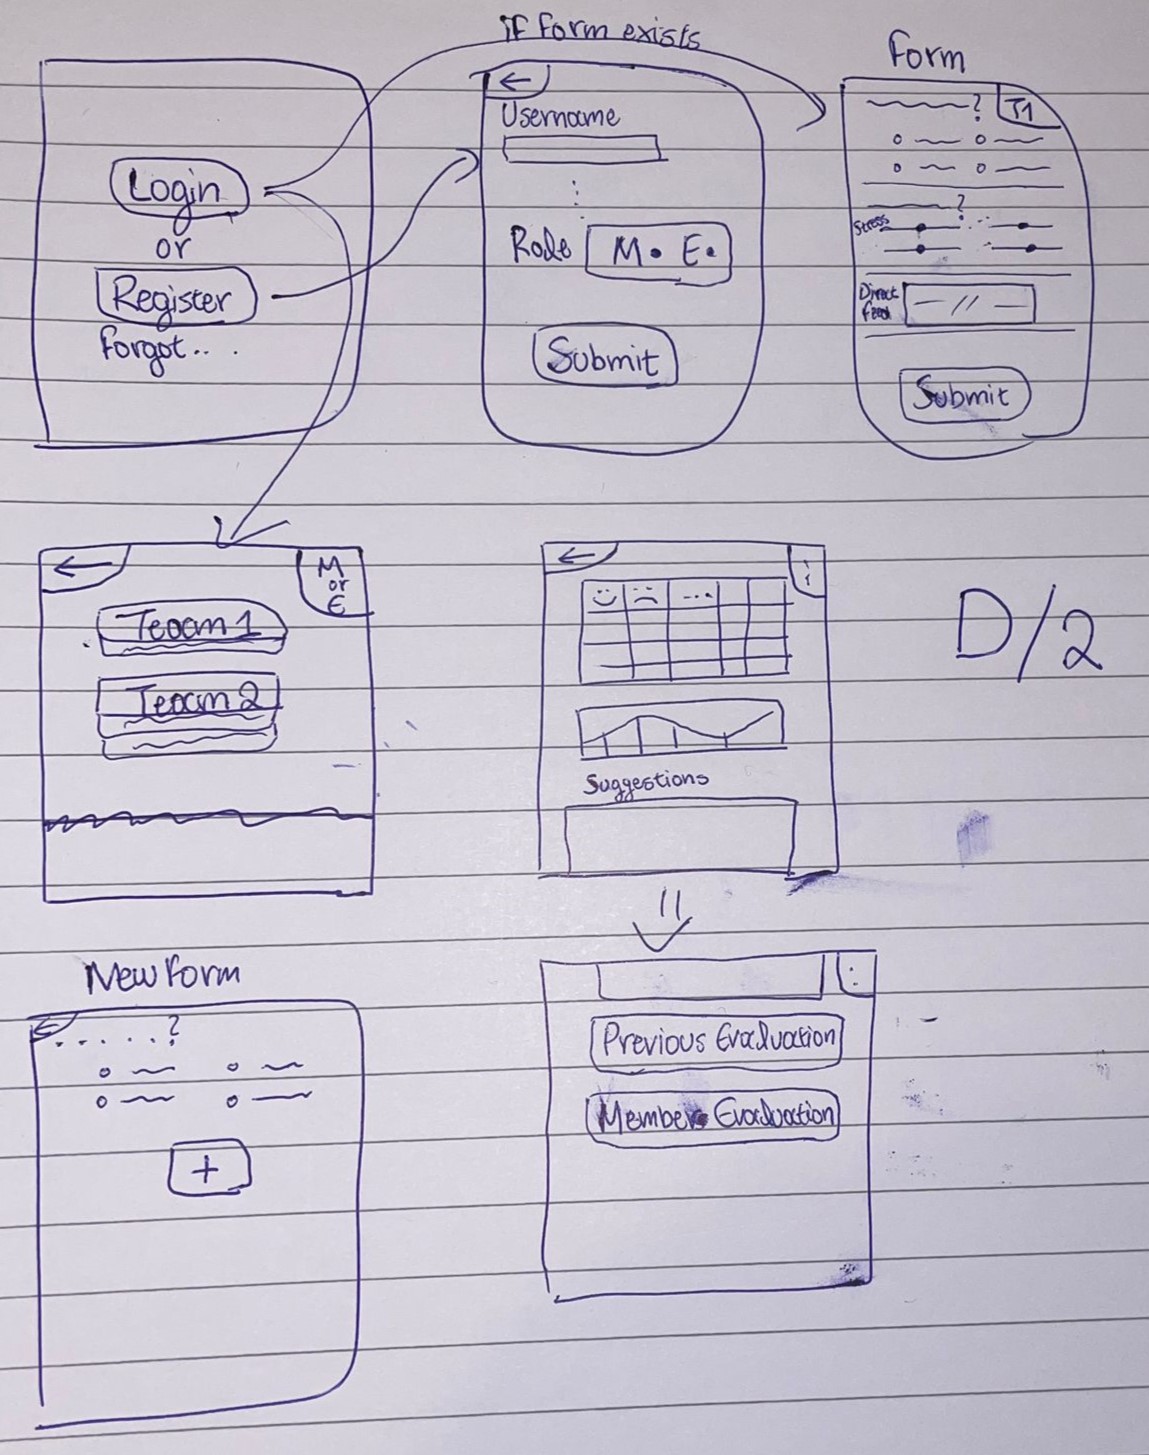 if Form exists
Form
Login
or
Register
Forgot.. .
Username
Role M. E.
Submit
? T1
?
Stress
Direct
Feed
Submit
M
or
E
Team 1
Team 2
D/2
Suggestions
New Form
?
+
Previous Evaluation
Members Evaluation